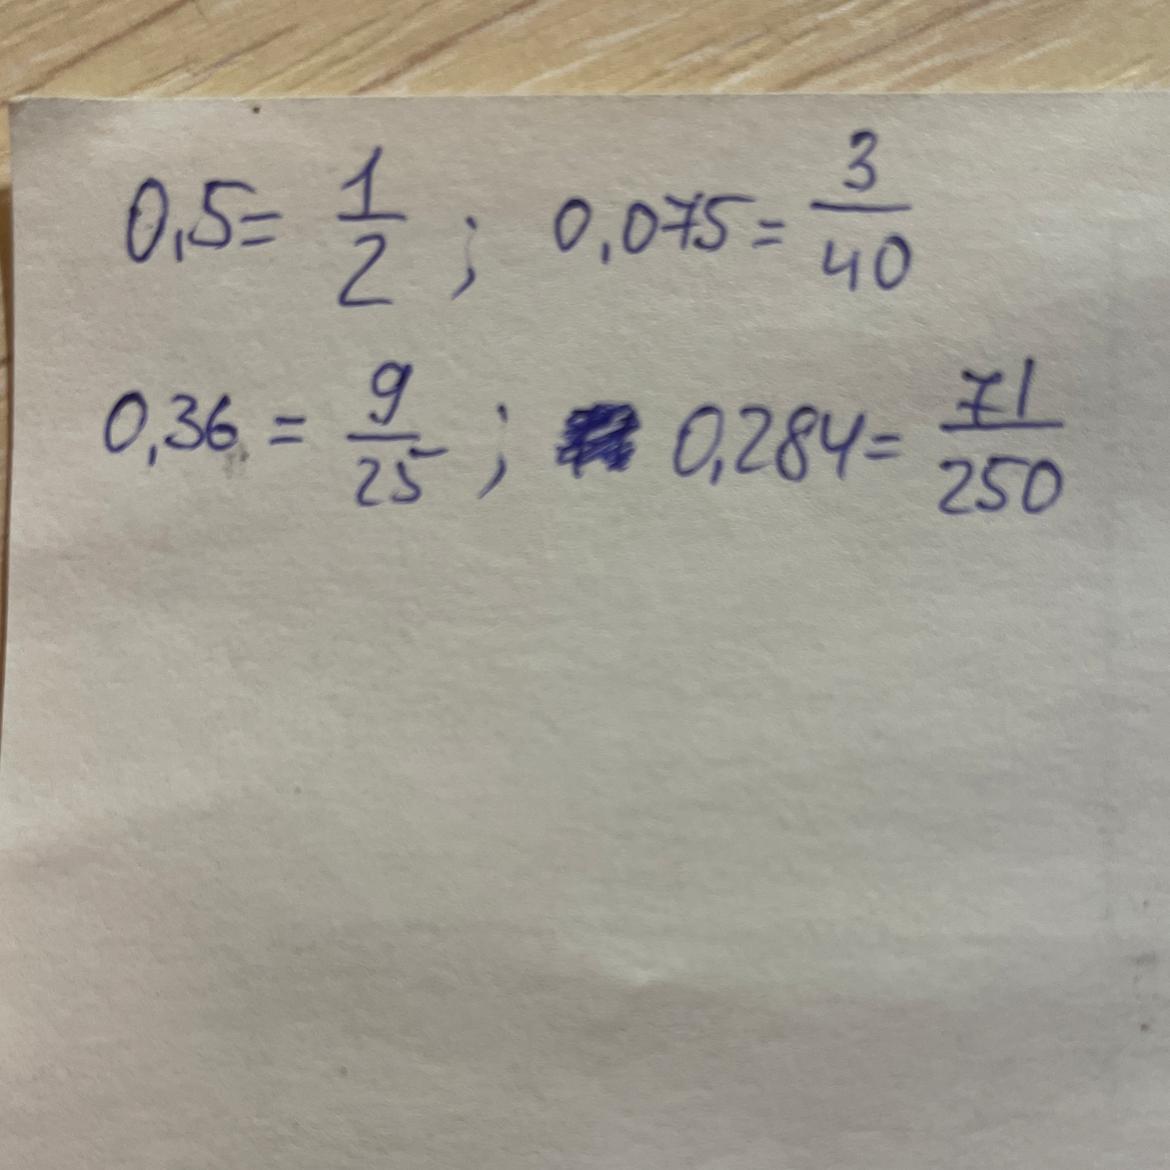 0,5 = 1/2 ; 0,075 = 3/40
0,36 = 9/25 ; 0,284 = 71/250